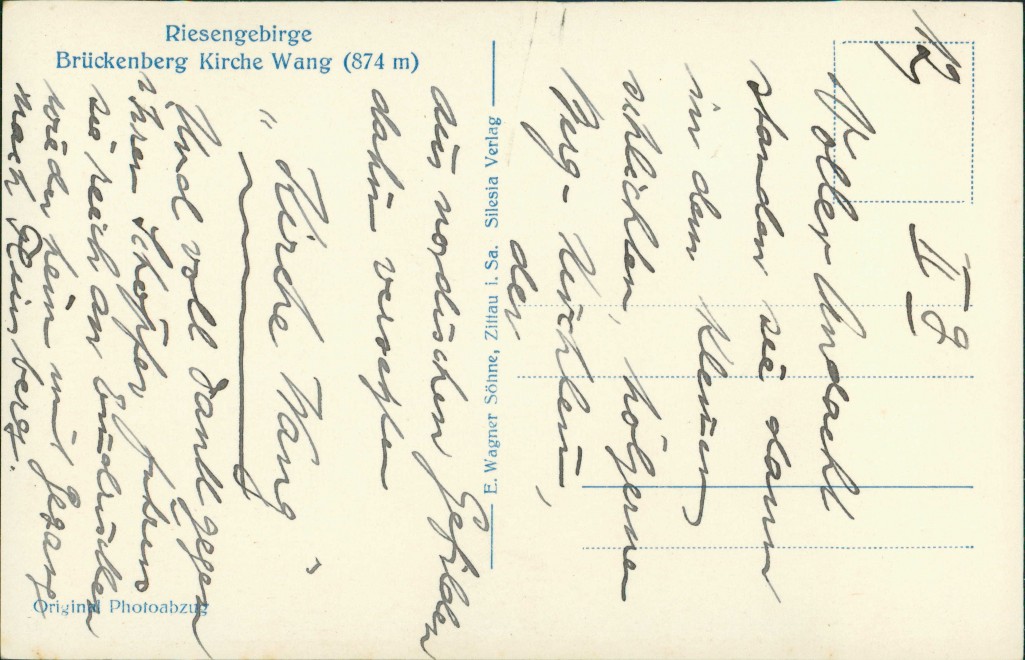 Riesengebirge
Brückenberg Kirche Wang (874 m)
E. Wagner Söhne, Zittau i. Sa. Silesia Verlag
Original Photoabzug
12
II 9
Voller Andacht
standen sie dann
in dem kleinen
schlichten, hölzerne
Berg-Kirchlein,
der
aus nordischen Gefilden
dahin versetzten
"Kirche Wang"
Und voll Dank gegen
ihren Schöpfer fuhren
sie reich an Eindrücken
wieder heim mit Gesang
nach